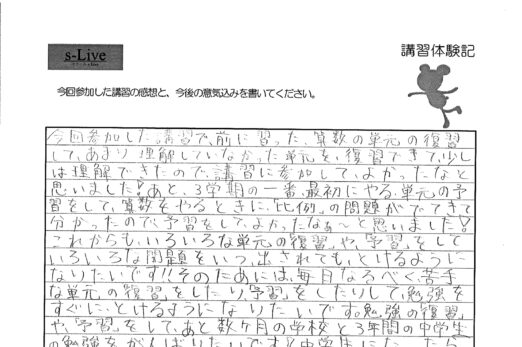 s-Live
講習体験記
今回参加した講習の感想と、今後の意気込みを書いてください。
今回参加した。講習で、前に習った、算数の単元の復習
して、あまり理解していなかった単元を、復習できて、少し
は理解できたので、講習に参加して、よかったなと
思いました!あと、3学期の一番、最初にやる、単元の予
習をして、算数をやるときに、「比例」の問題がでてきて
分かったので、予習をしてよかったなぁ~と思いました。
これからも、いろいろな単元の復習や、「学習」をして
いろいろな問題をいつ、出されてもとけるように
なりたいです!!そのためには、毎日なるべく、苦手
な単元の「復習」をしたり、「学習」をしたりして、勉強を
すぐに、とけるようになりたいです。勉強の「復習」
や、「学習」をして、あと数ヶ月の学校と3年間の中学生
の勉強をがんばりたいです!中学生に